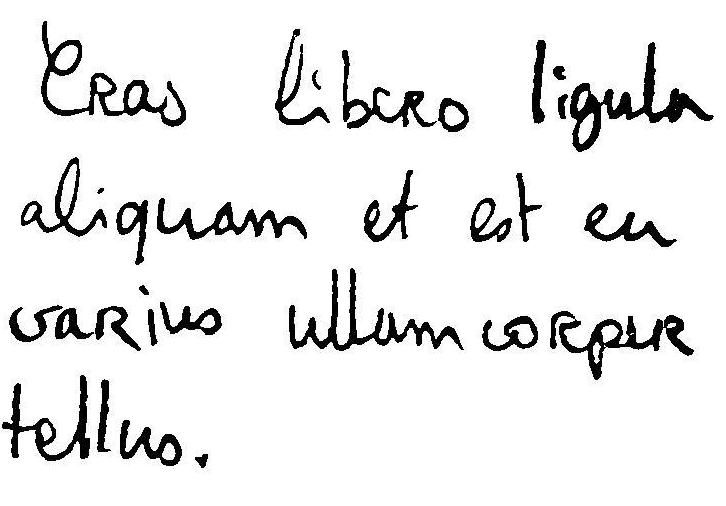 Cras libero ligula
aliquam et est eu
varius ullamcorper
tellus.